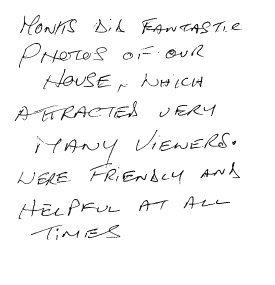 MONKS DID FANTASTIC
PHOTOS OF OUR
HOUSE, WHICH
ATTRACTED VERY
MANY VIEWERS.
WERE FRIENDLY AND
HELPFUL AT ALL
TIMES